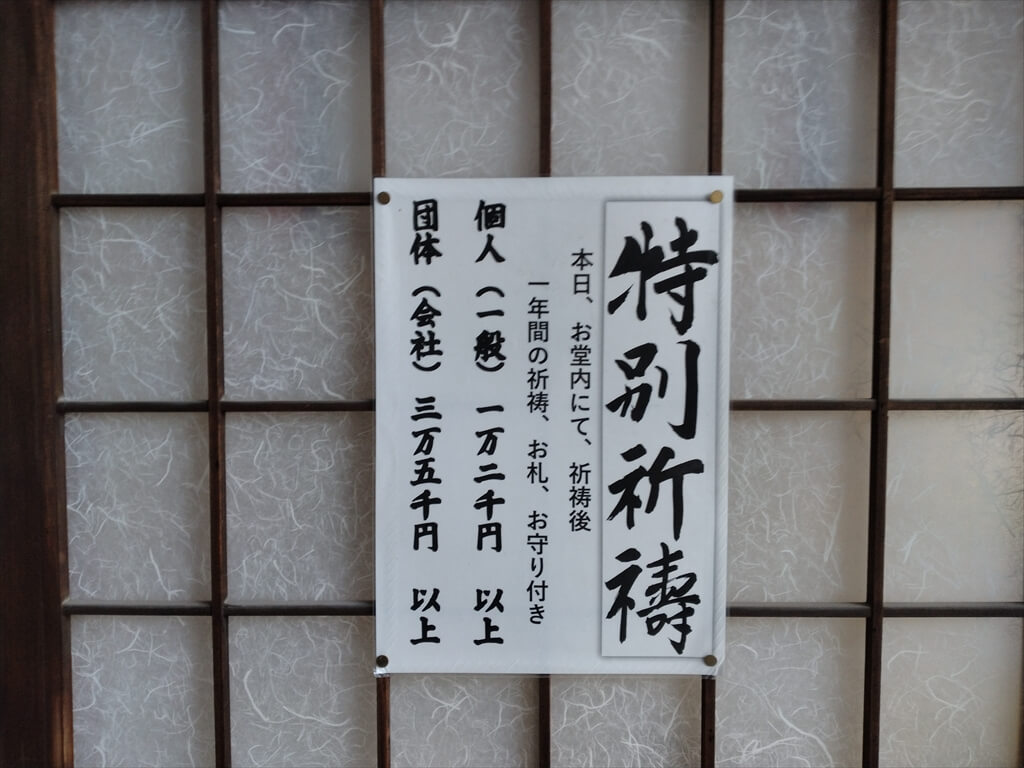 特別祈禱
本日、お堂内にて、祈祷後
一年間の祈祷、お札、お守り付き
個人（一般）一万二千円　以上
団体（会社）三万五千円　以上